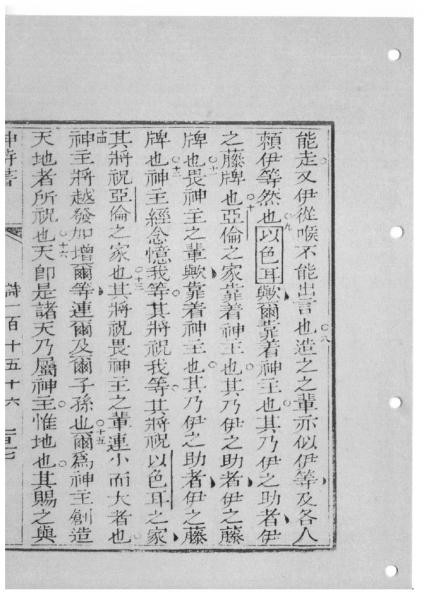 能走又伊從喉不能出言也○八造之之輩亦似伊等及各人
賴伊等然也○九以色耳歟爾靠着神主也其乃伊之助者伊
之藤牌也○十亞倫之家靠着神主也其乃伊之助者伊之藤
牌也○十一畏神主之輩歟靠着神主也其乃伊之助者伊之藤
牌也○十二神主經念憶我等其將祝我等其將祝以色耳之家
其將祝亞倫之家也○十三其將祝畏神主之輩連小而大者也
十四神主將越發加增爾等連爾及爾子孫也○十五爾爲神主創造
天地者所祝也○十六天卽是諸天乃屬神主惟地也其賜之與
神詩書 詩一百十五十六